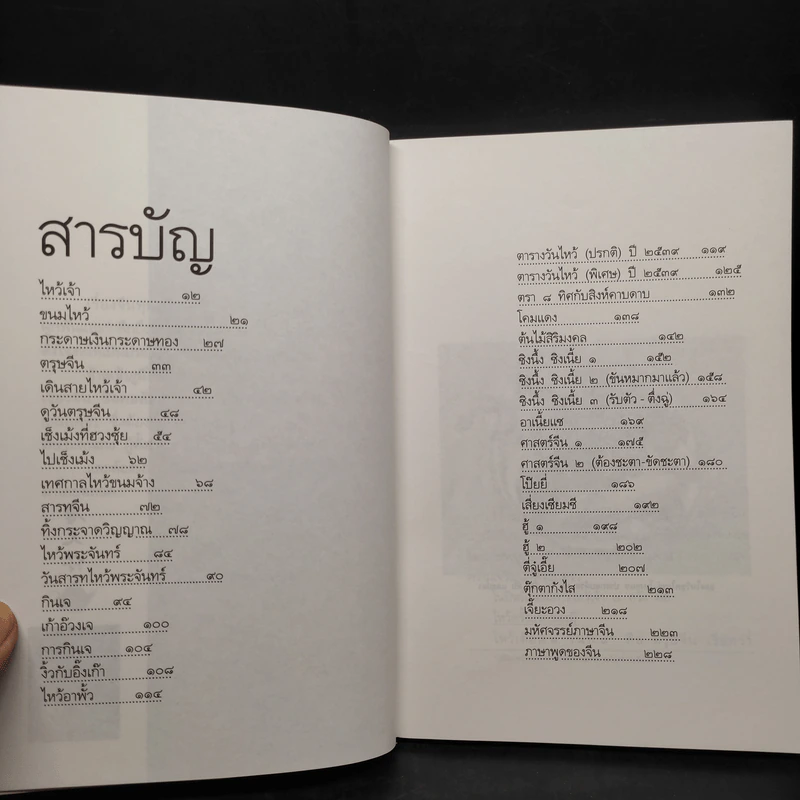 สารบัญ
ไหว้เจ้า ๑๒
ขนมไหว้ ๒๑
กระดาษเงินกระดาษทอง ๒๗
ตรุษจีน ๓๓
เดินสายไหว้เจ้า ๔๒
ดูวันตรุษจีน ๔๘
เช็งเม้งที่ฮวงซุ้ย ๕๔
ไปเช็งเม้ง ๖๒
เทศกาลไหว้ขนมจ้าง ๖๘
สารทจีน ๗๒
ทิ้งกระจาดวิญญาณ ๗๘
ไหว้พระจันทร์ ๘๔
วันสารทไหว้พระจันทร์ ๙๐
กินเจ ๙๔
เก้าอ๊วงเจ ๑๐๐
การกินเจ ๑๐๔
งิ้วกับอิ๊งเก๊า ๑๐๘
ไหว้อาพั้ว ๑๑๔
ตารางวันไหว้ (ปรกติ) ปี ๒๕๓๙ ๑๑๙
ตารางวันไหว้ (พิเศษ) ปี ๒๕๓๙ ๑๒๕
ตรา ๘ ทิศกับสิงห์คาบดาบ ๑๓๒
โคมแดง ๑๓๘
ต้นไม้สิริมงคล ๑๔๒
ซิงนึ้ง ซิงเนี้ย ๑ ๑๕๒
ซิงนึ้ง ซิงเนี้ย ๒ (ขันหมากมาแล้ว) ๑๕๘
ซิงนึ้ง ซิงเนี้ย ๓ (รับตัว - ตึ่งฉู่) ๑๖๔
อาเนี้ยแซ ๑๖๙
ศาสตร์จีน ๑ ๑๗๕
ศาสตร์จีน ๒ (ต้องชะตา-ขัดชะตา) ๑๘๐
โป๊ยยี่ ๑๘๖
เสี่ยงเซียมซี ๑๙๒
ฮู้ ๑ ๑๙๘
ฮู้ ๒ ๒๐๒
ตี่จู๋เอี๊ย ๒๐๗
ตุ๊กตากังไส ๒๑๓
เจี๊ยะอวง ๒๑๘
มหัศจรรย์ภาษาจีน ๒๒๓
ภาษาพูดของจีน ๒๒๘